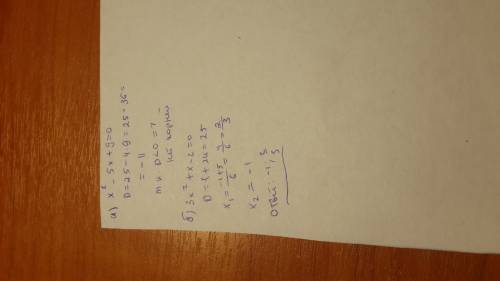 а) x² - 5x + 9 = 0
D = 25 - 4·9 = 25 - 36 =
= -11
т.к D<0 =>
нет корней
б) 3x² + x - 2 = 0
D = 1 + 24 = 25
x₁ = (-1+5)/6 = 4/6 = 2/3
x₂ = -1
Ответ: -1;